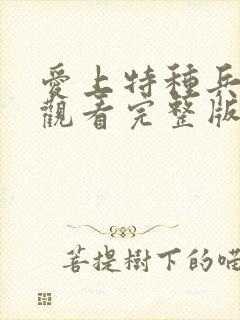 愛上特種兵
觀看完整版
菩提樹下的喵